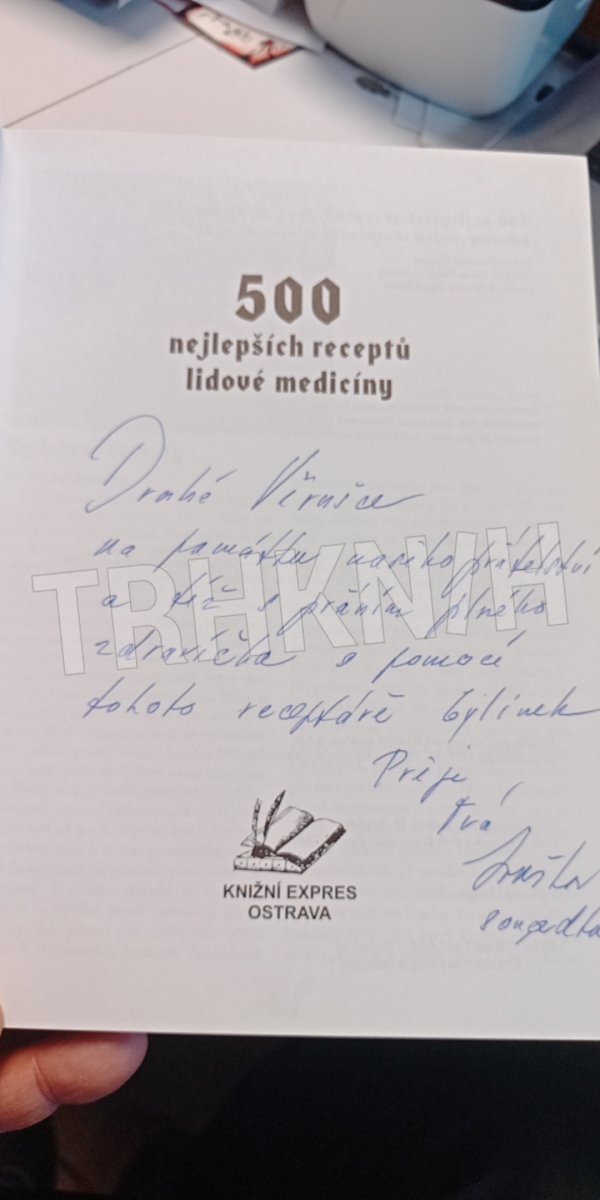 500
nejlepších receptů
lidové medicíny
Drahé Věrušce
na památku našeho přátelství
a též s přáním plného
zdravíčka s pomocí
tohoto receptáře bylinek
Přeje
Tvá
sousedka
KNIŽNÍ EXPRES
OSTRAVA
TRHKNIH